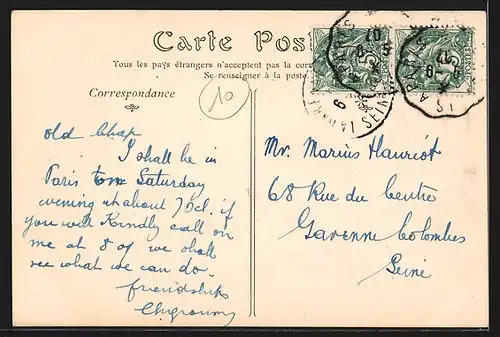 Carte Pos
Tous les pays étrangers n'acceptent pas la cor
Se renseigner à la poste
Correspondance
10
old Chap
I shall be in
Paris Saturday
evening at about 7 Ocl. if
you will Kindly call on
me at 8 of we shall
see what we can do.
friendship
Mr. Marius Hauriot
68 Rue du Centre
Garenne Colombes
Seine